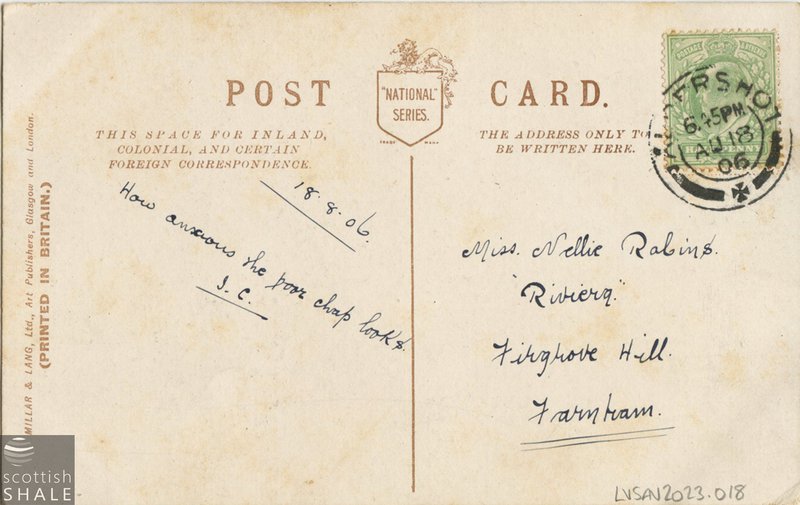 POST CARD.
"NATIONAL"
SERIES.
TRADE MARK
THIS SPACE FOR INLAND,
COLONIAL, AND CERTAIN
FOREIGN CORRESPONDENCE.
THE ADDRESS ONLY TO
BE WRITTEN HERE.
POSTAGE & REVENUE
HALFPENNY
ALDERSHOT
6.45PM
AU 18
06
18.8.06.
How anxious the poor chap looks.
I.C.
Miss. Nellie Robins.
"Riviera."
Firgrove Hill.
Farnham.
MILLAR & LANG, Ltd., Art Publishers, Glasgow and London.
(PRINTED IN BRITAIN.)
scottish
SHALE
LVSAV2023.018